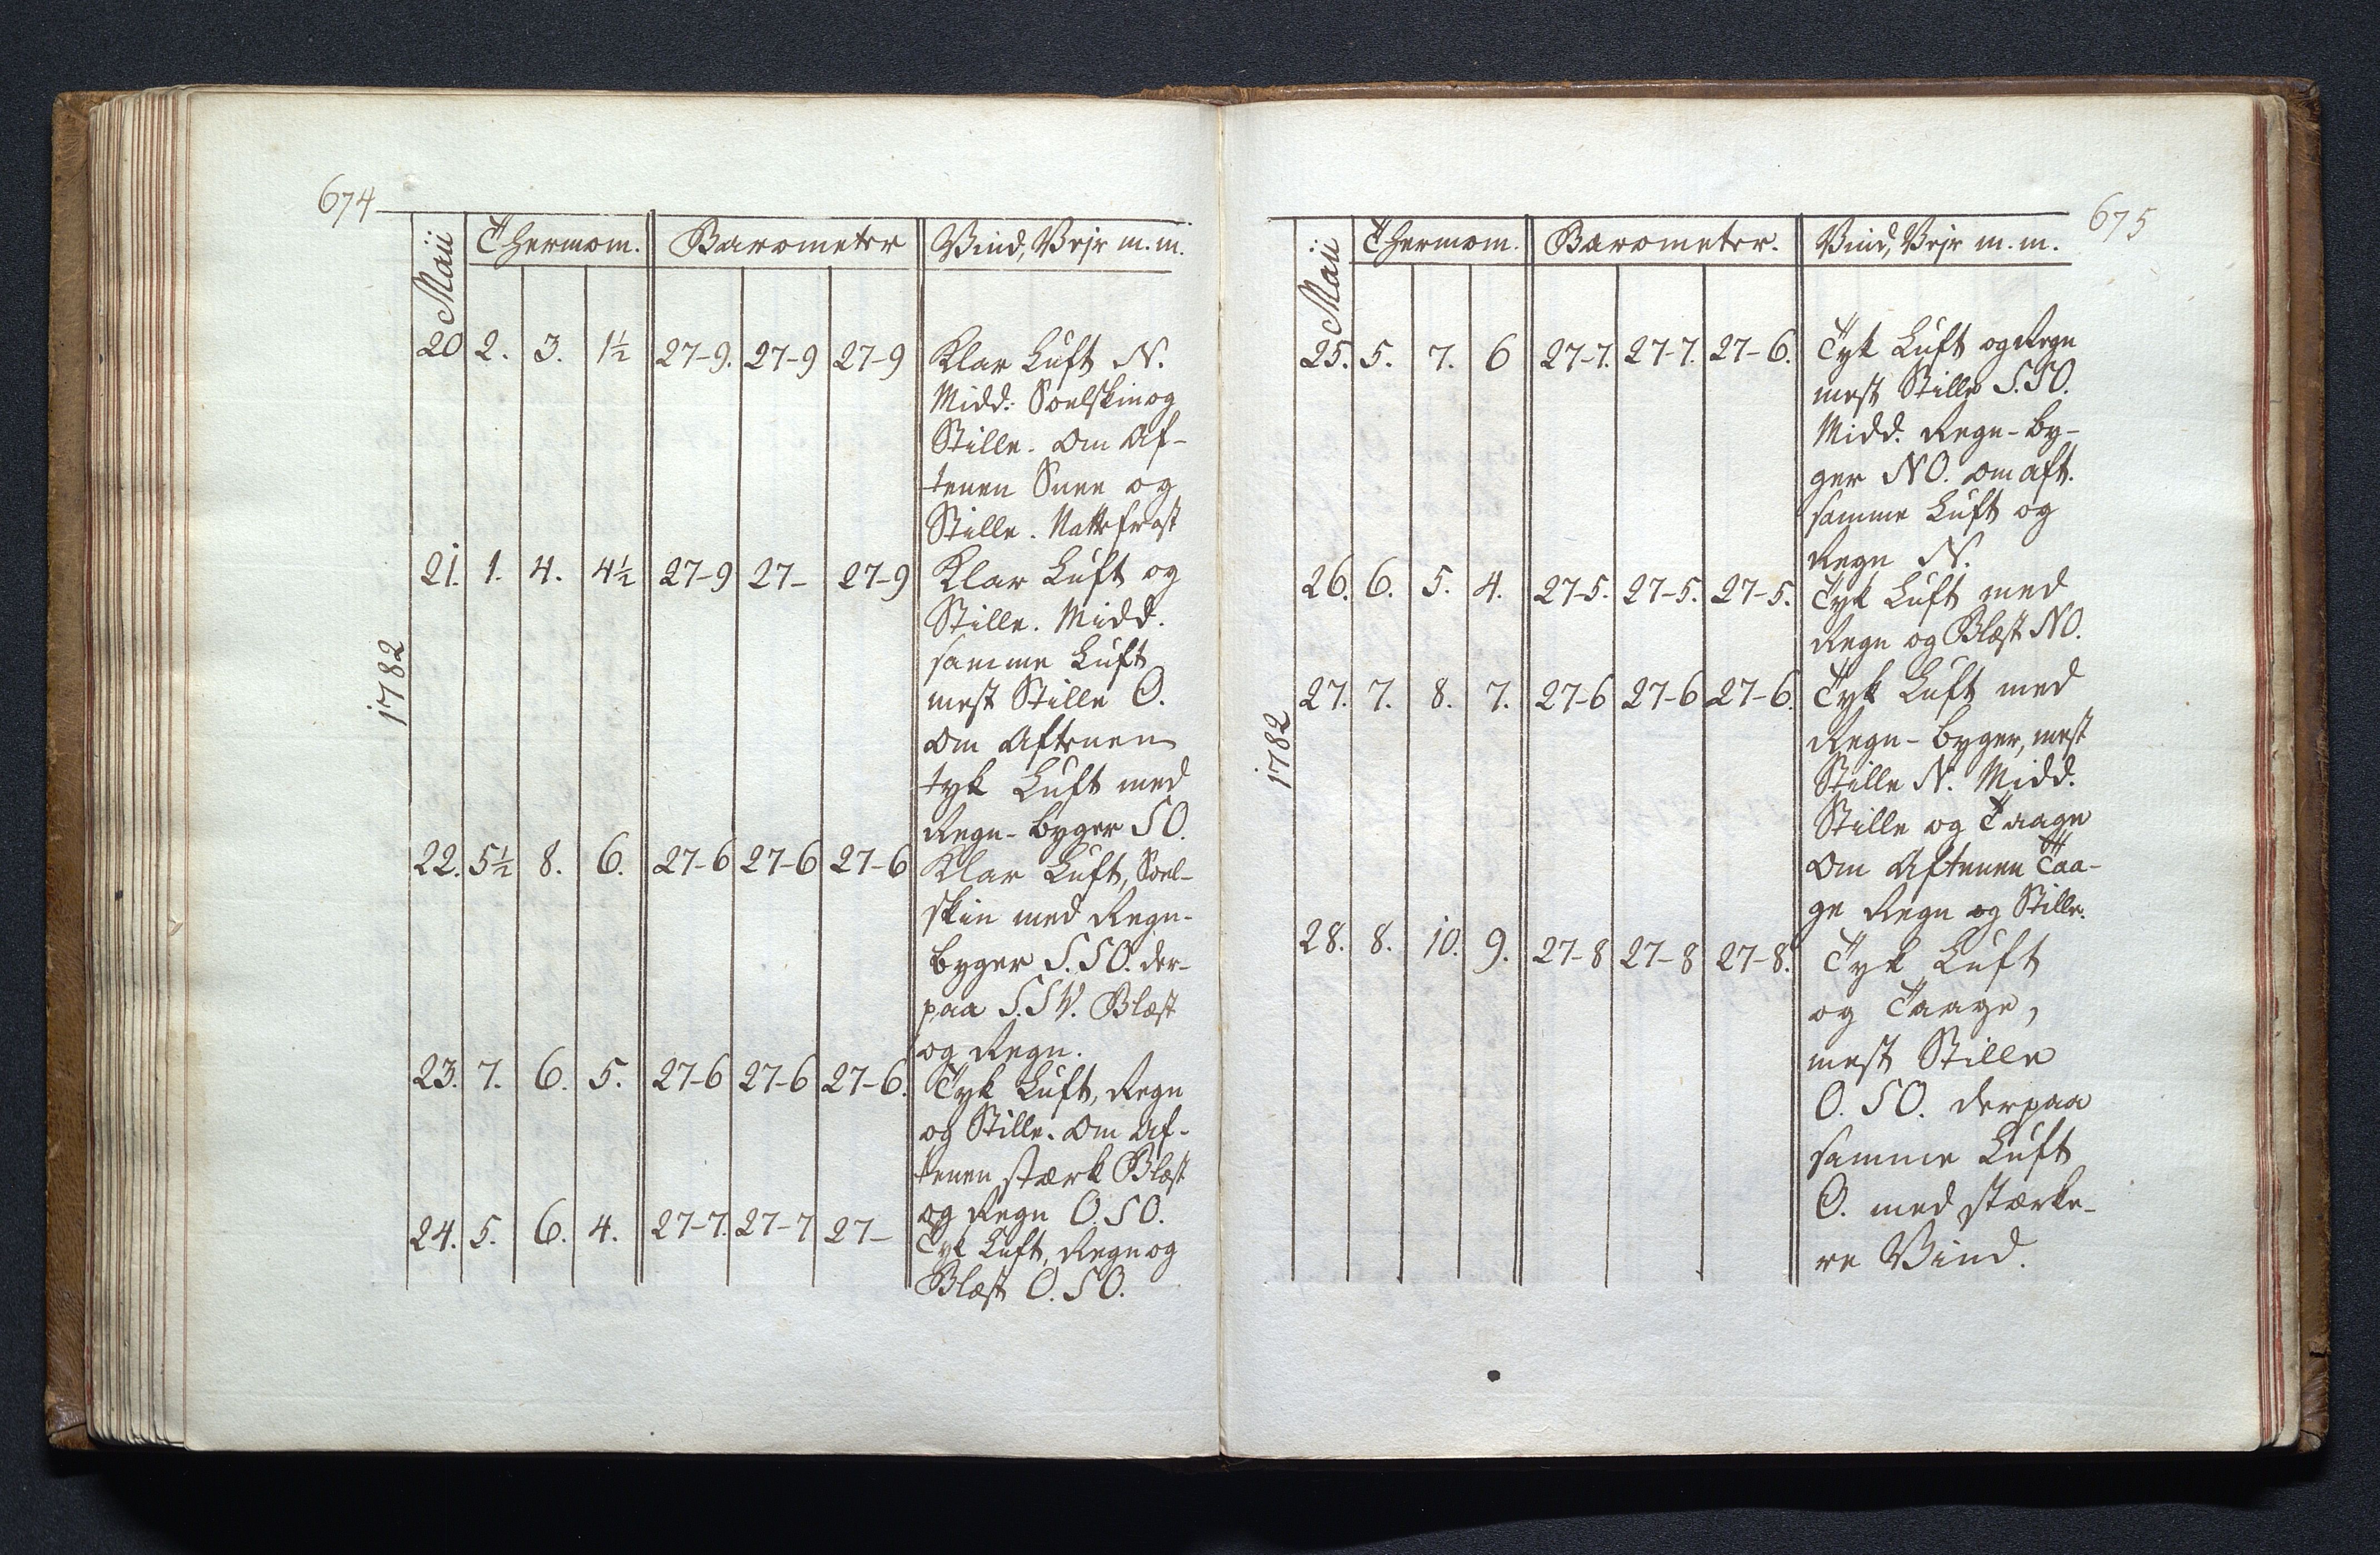 674
Maii Thermom. Barometer Vind, Vejr m. m.
20 2. 3. 1½ 27-9. 27-9 27-9 Klar Luft N.
Midd: Soelskin og
Stille. Om Af-
tenen Snee og
Stille. Nattefrost
21. 1. 4. 4½ 27-9 27- 27-9 Klar Luft og
Stille. Midd.
samme Luft
mest Stille O.
Om Aftenen
tyk Luft med
Regn-byger SO.
22. 5½ 8. 6. 27-6 27-6 27-6 Klar Luft, Soel-
skin med Regn-
byger S.SO. der-
paa S.SW. Blæst
og Regn.
23. 7. 6. 5. 27-6 27-6 27-6. Tyk Luft, Regn
og Stille. Om Af-
tenen stærk Blæst
og Regn O.SO.
24. 5. 6. 4. 27-7. 27-7 27- Tyk Luft, Regn og
Blæst O.SO.
1782
675
Maii Thermom. Barometer. Vind, Vejr m. m.
25. 5. 7. 6 27-7. 27-7. 27-6. Tyk Luft og Regn
mest Stille S.SO.
Midd. Regn-by-
ger NO. om aft.
samme Luft og
Regn N.
26. 6. 5. 4. 27-5. 27-5. 27-5. Tyk Luft med
Regn og Blæst NO.
27. 7. 8. 7. 27-6 27-6 27-6. Tyk Luft med
Regn-byger, mest
Stille N. Midd.
Stille og Taage
Om Aftenen Taa-
ge Regn og Stille.
28. 8. 10. 9. 27-8 27-8 27-8. Tyk Luft
og Taage,
mest Stille
O.SO. derpaa
samme Luft
O. med stærke-
re Vind.
1782